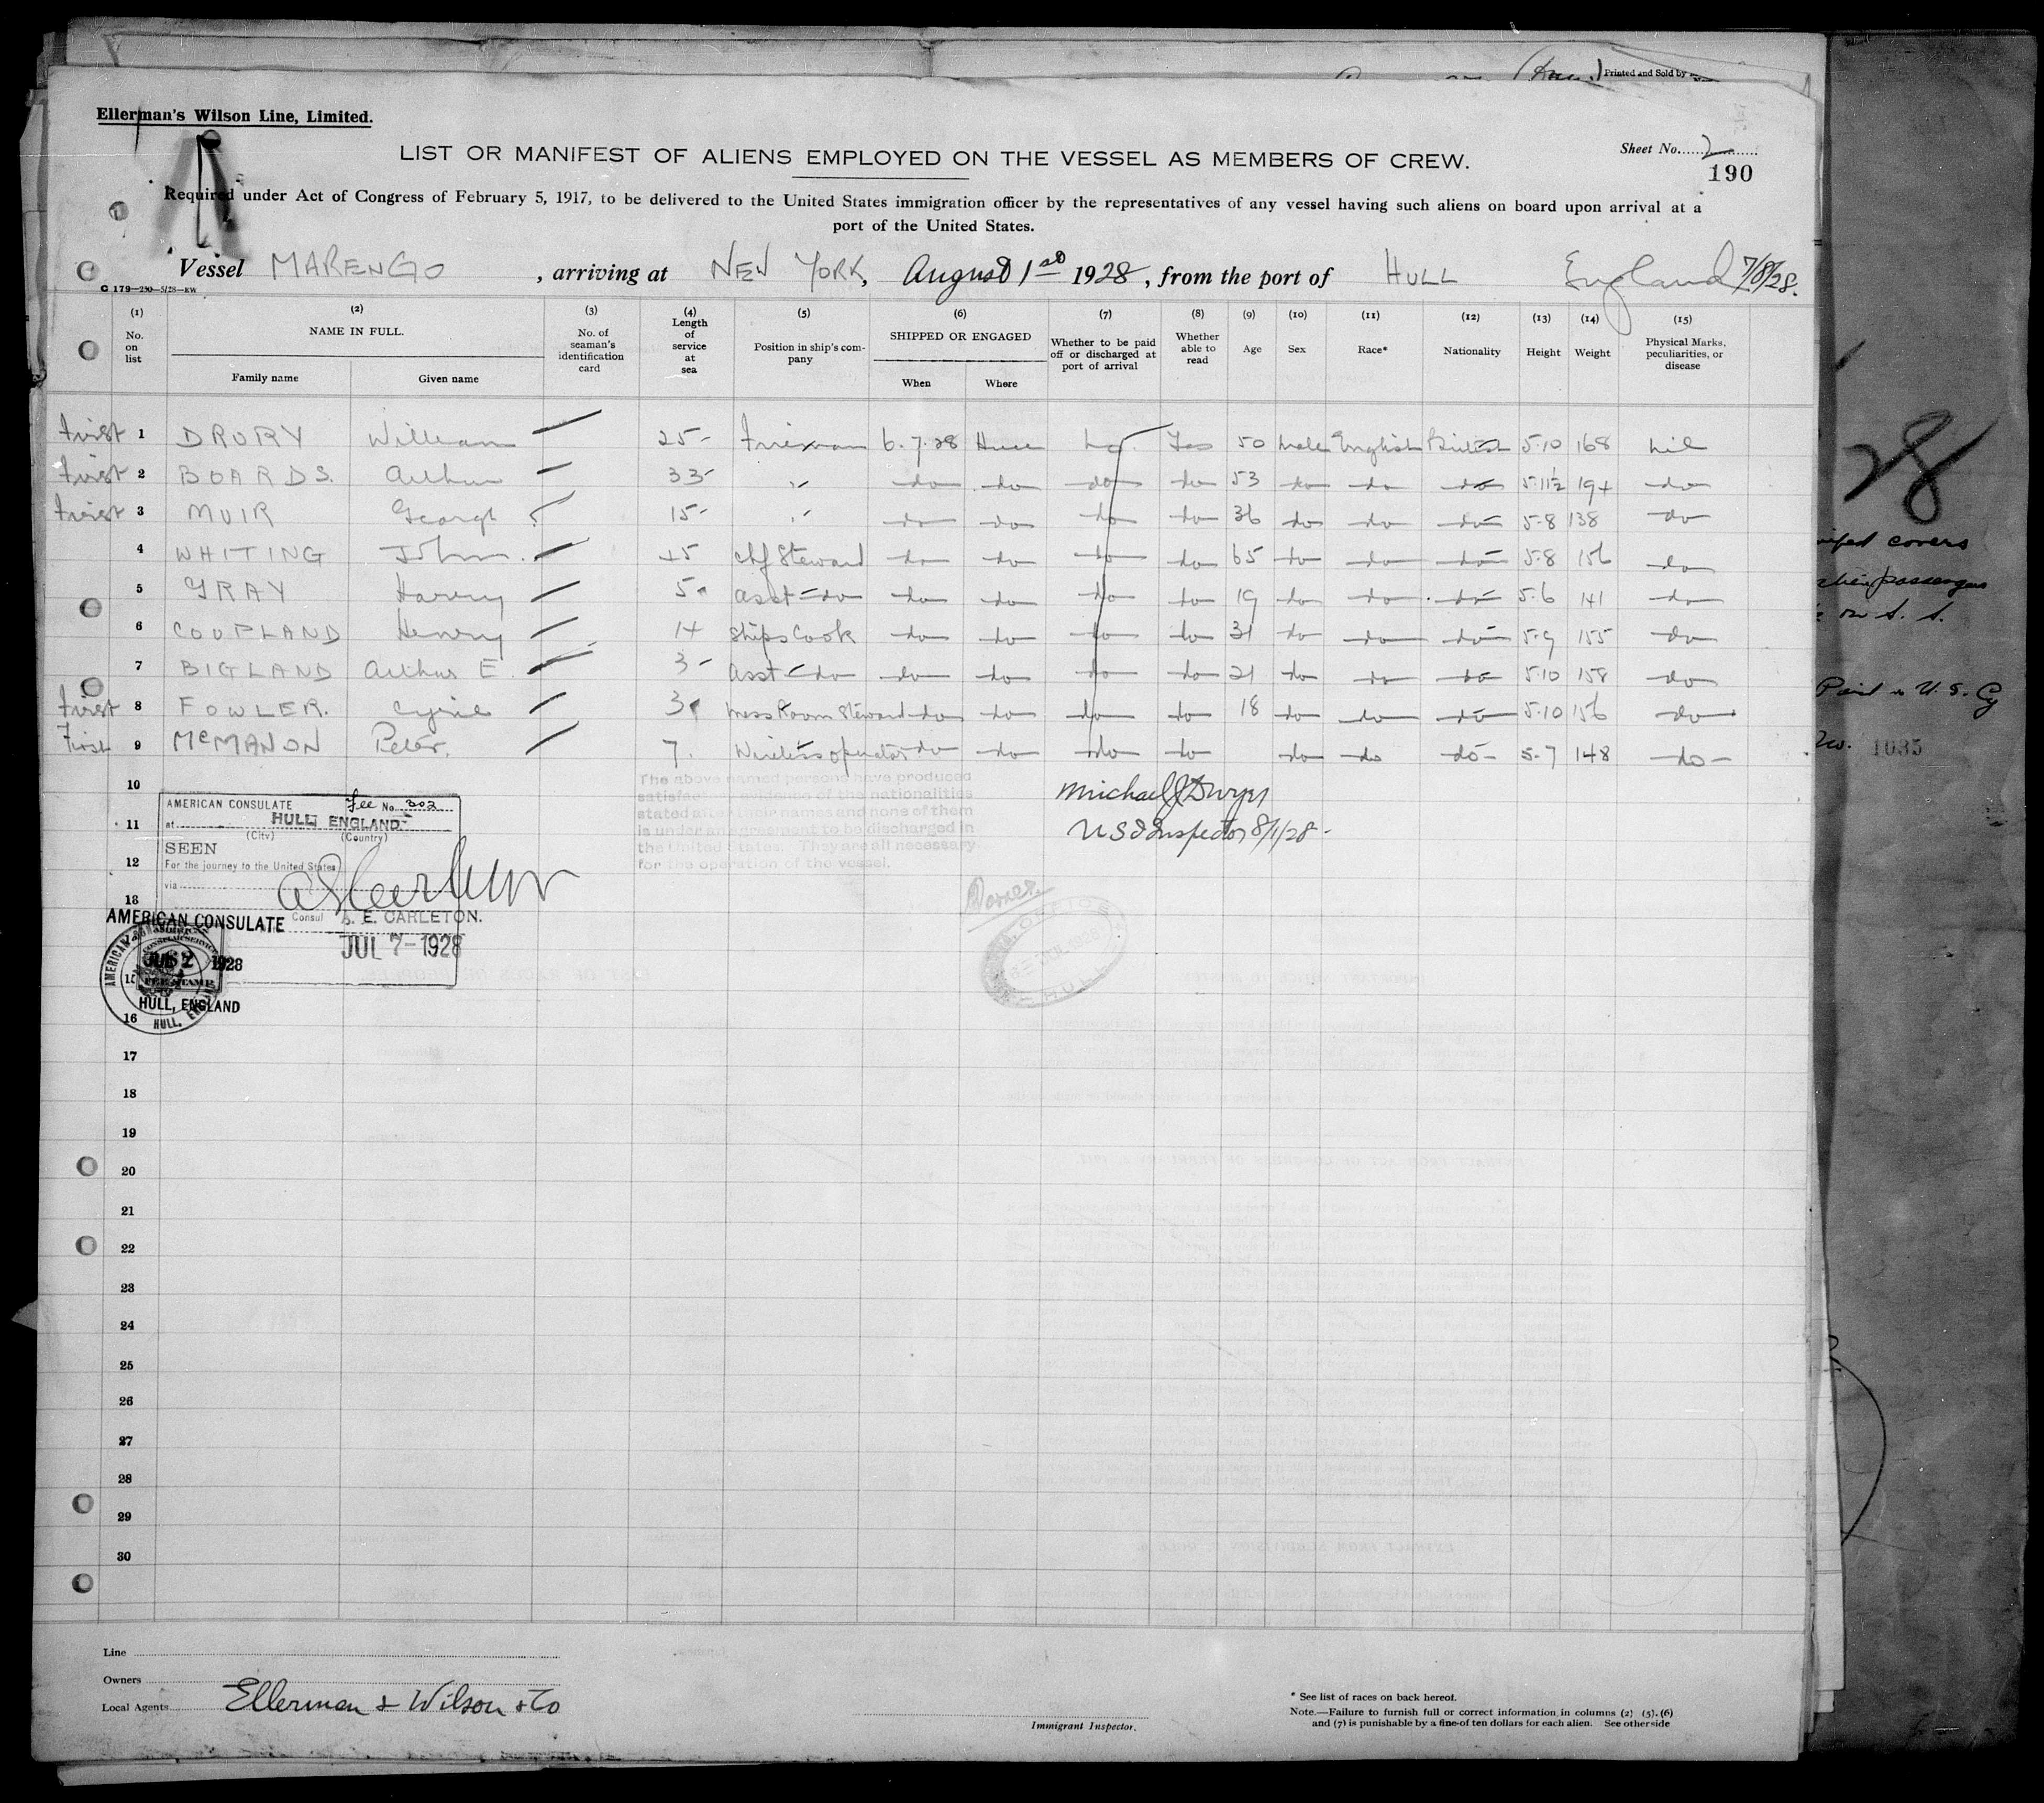 Printed and Sold by
Ellerman's Wilson Line, Limited.
LIST OR MANIFEST OF ALIENS EMPLOYED ON THE VESSEL AS MEMBERS OF CREW.
Sheet No. 2
190
Required under Act of Congress of February 5, 1917, to be delivered to the United States immigration officer by the representatives of any vessel having such aliens on board upon arrival at a
port of the United States.
Vessel MARENGO, arriving at NEW YORK, August 1st 1928, from the port of HULL England 7/8/28.
C 179—250—5/28—EW
(1) No. on list
(2) NAME IN FULL.
Family name
Given name
(3) No. of seaman's identification card
(4) Length of service at sea
(5) Position in ship's company
(6) SHIPPED OR ENGAGED
When
Where
(7) Whether to be paid off or discharged at port of arrival
(8) Whether able to read
(9) Age
(10) Sex
(11) Race*
(12) Nationality
(13) Height
(14) Weight
(15) Physical Marks, peculiarities, or disease
First 1 DRURY William 25 Fireman 6.7.28 Hull No. Yes 50 Male English British 5.10 168 Nil
First 2 BOARDS. Arthur 33 " do do do do 53 do do do 5.11½ 194 do
First 3 MUIR George 15 " do do do do 36 do do do 5.8 138 do
4 WHITING John. 45 Chf Steward do do do do 65 do do do 5.8 156 do
5 GRAY Harry 5 Asst do do do do do 19 do do do 5.6 141 do
6 COUPLAND Henry 14 Ships Cook do do do do 31 do do do 5.9 155 do
7 BIGLAND Arthur E. 3 Asst do do do do do 21 do do do 5.10 158 do
First 8 FOWLER. Cyril 3 Mess Room Steward do do do do 18 do do do 5.10 156 do
First 9 McMANON Peter. 7. Wireless operator do do do do do do do 5.7 148 do
10
11
12
13
15
16
17
18
19
20
21
22
23
24
25
26
27
28
29
30
The above named persons have produced
satisfactory evidence of the nationalities
stated after their names and none of them
is under an agreement to be discharged in
the United States. They are all necessary
for the operation of the vessel.
Michael J Dwyer
US Inspector 8/1/28
AMERICAN CONSULATE Fee No. 302
at HULL ENGLAND
(City) (Country)
SEEN
For the journey to the United States
via
Consul L. E. CARLETON.
JUL 7-1928
AMERICAN CONSULATE
1928
FEE STAMP
HULL, ENGLAND
HULL, EN
OFFICE
HULL
28
covers
passengers
on S. S.
Paid in U. S. Cy
No. 1035
Line
Owners
Local Agents Ellerman & Wilson & Co
Immigrant Inspector.
* See list of races on back hereof.
Note.—Failure to furnish full or correct information in columns (2) (5), (6)
and (7) is punishable by a fine of ten dollars for each alien. See other side